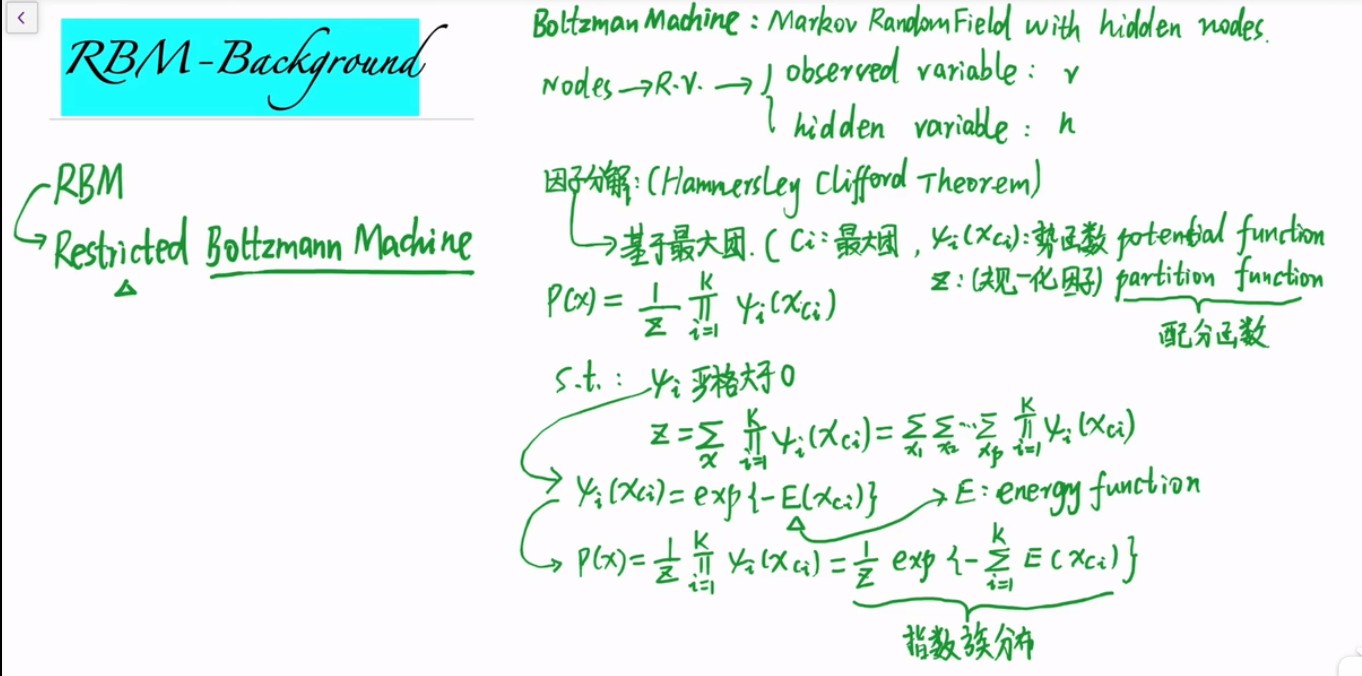 RBM-Background
RBM
Restricted Boltzmann Machine
△
Boltzman Machine : Markov Random Field with hidden nodes.
Nodes → R.V. → { observed variable : v
hidden variable : h
因子分解:(Hammersley Clifford Theorem)
→ 基于最大团. ( Ci : 最大团 , ψi(xci) : 势函数 potential function
Z : (规一化因子) partition function
配分函数
P(x) = 1/Z ∏_{i=1}^{K} ψi(xci)
s.t. : ψi 严格大于0
Z = ∑_x ∏_{i=1}^{K} ψi(xci) = ∑_{x1} ∑_{x2} … ∑_{xp} ∏_{i=1}^{K} ψi(xci)
ψi(xci) = exp{-E(xci)} → E : energy function
△
P(x) = 1/Z ∏_{i=1}^{K} ψi(xci) = 1/Z exp{-∑_{i=1}^{k} E(xci)}
指数族分布